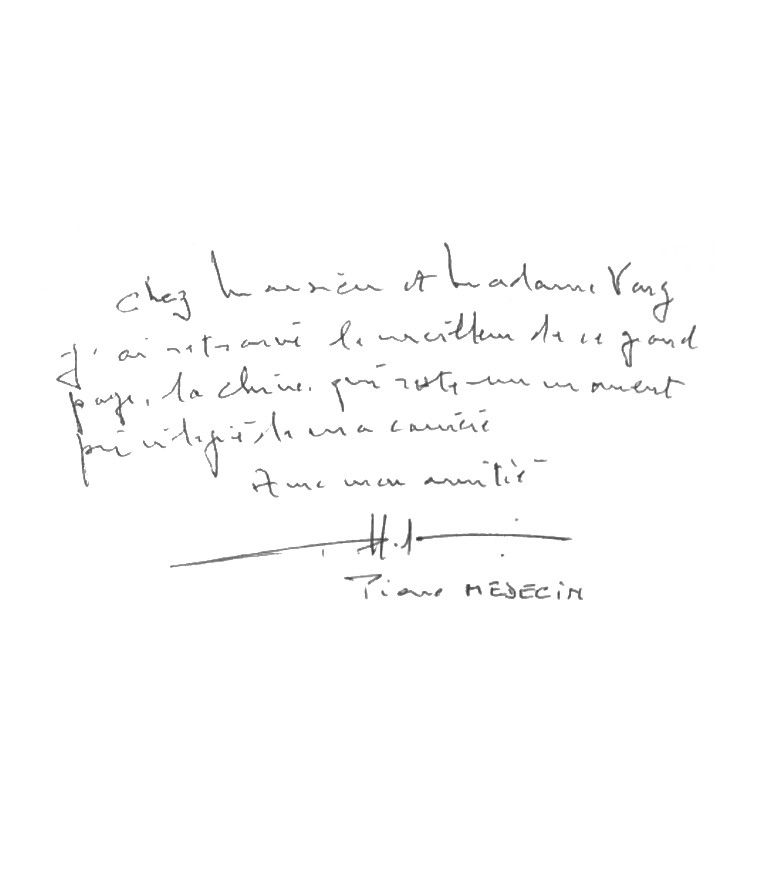 Chez Monsieur et Madame Vong
j'ai retrouvé le meilleur de ce grand
pays, la Chine, qui reste un moment
privilégié de ma carrière
Avec mon amitié
Pierre MÉDECIN